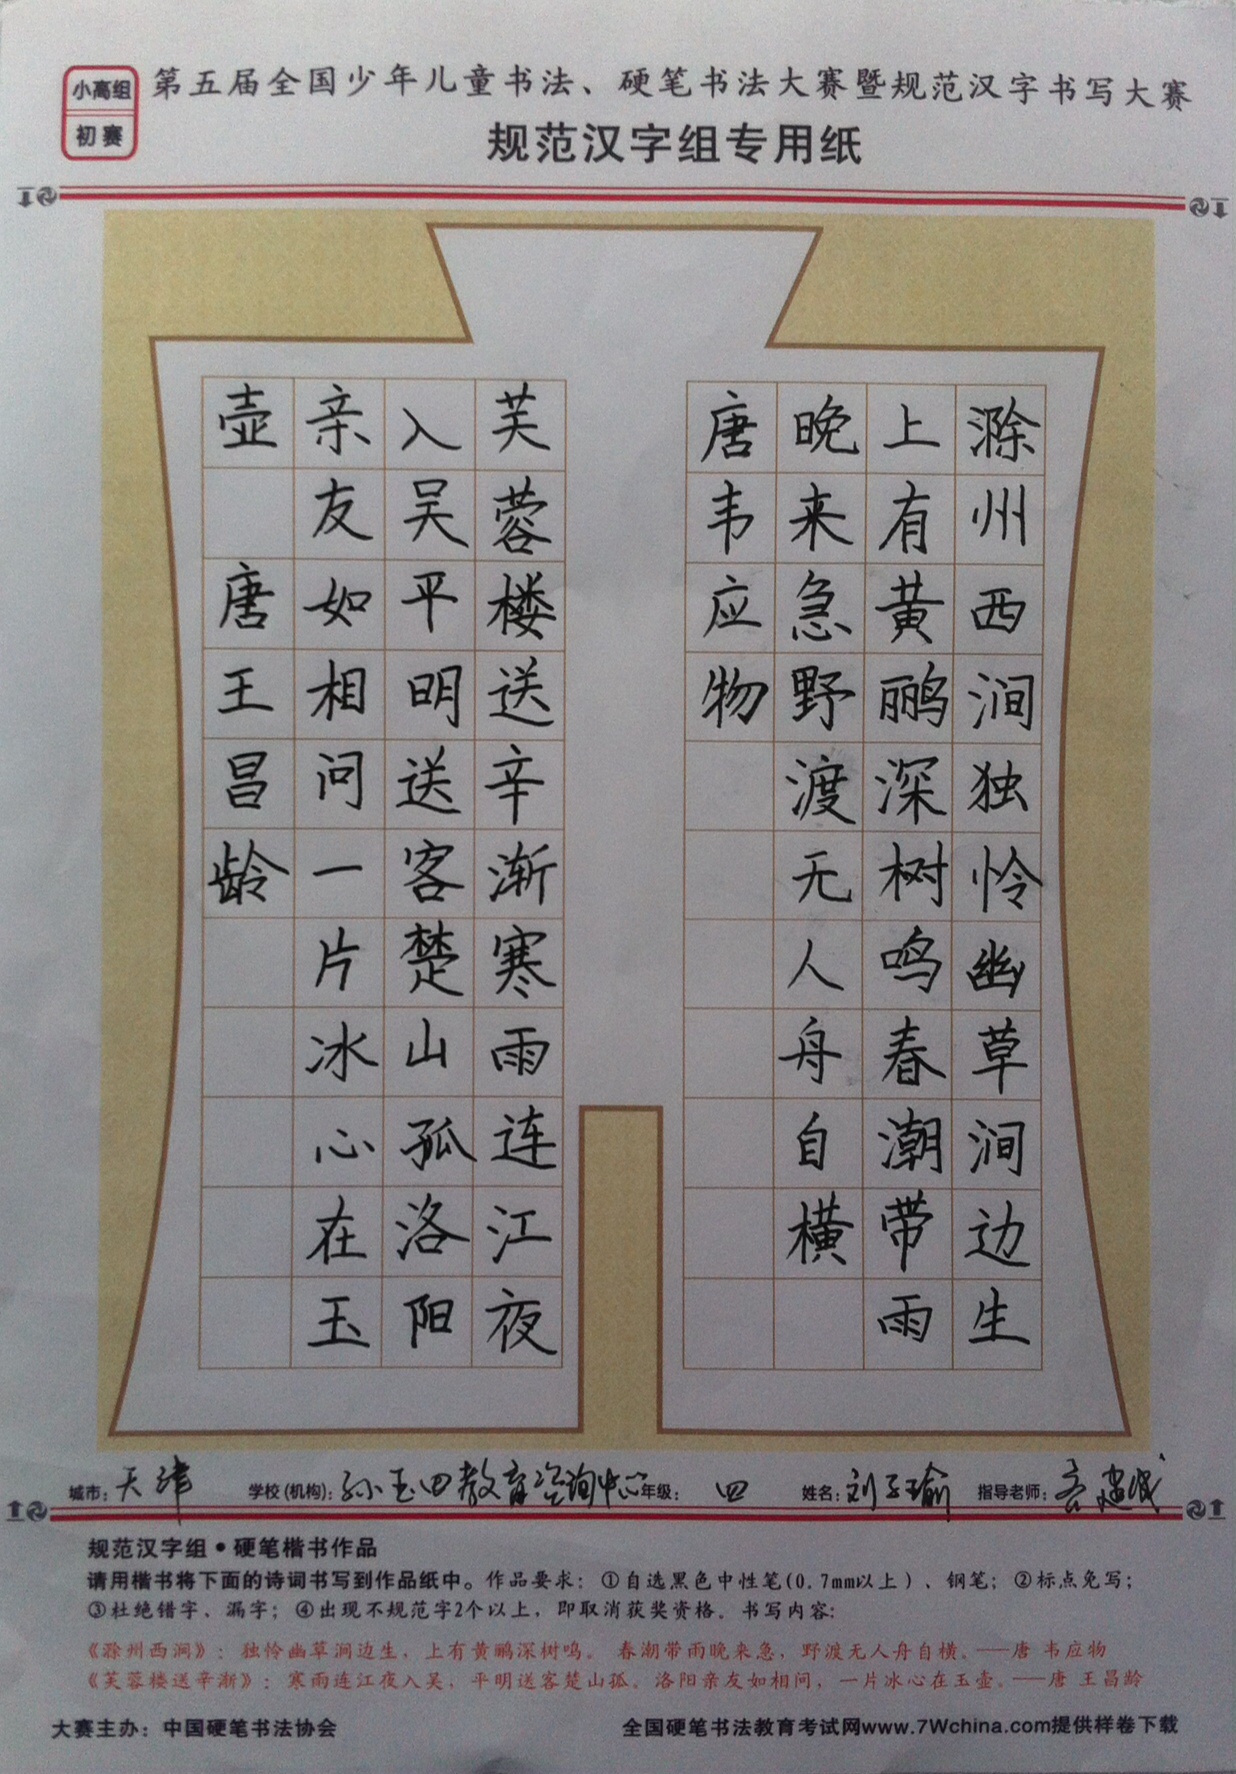 小高组
初赛
第五届全国少年儿童书法、硬笔书法大赛暨规范汉字书写大赛
规范汉字组专用纸
滁州西涧独怜幽草涧边生
上有黄鹂深树鸣春潮带雨
晚来急野渡无人舟自横
唐韦应物
芙蓉楼送辛渐寒雨连江夜
入吴平明送客楚山孤洛阳
亲友如相问一片冰心在玉
壶 唐王昌龄
城市：天津 学校(机构)：孙玉田教育咨询中心 年级：四 姓名：刘子瑜 指导老师：
规范汉字组●硬笔楷书作品
请用楷书将下面的诗词书写到作品纸中。作品要求：①自选黑色中性笔(0.7mm以上)、钢笔；②标点免写；
③杜绝错字、漏字；④出现不规范字2个以上，即取消获奖资格。书写内容：
《滁州西涧》：独怜幽草涧边生，上有黄鹂深树鸣。 春潮带雨晚来急，野渡无人舟自横。——唐 韦应物
《芙蓉楼送辛渐》：寒雨连江夜入吴，平明送客楚山孤。洛阳亲友如相问，一片冰心在玉壶。——唐 王昌龄
大赛主办：中国硬笔书法协会 全国硬笔书法教育考试网www.7Wchina.com提供样卷下载